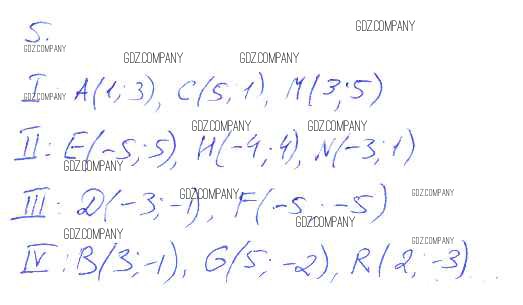 5.
GDZ.COMPANY
GDZ.COMPANY
GDZ.COMPANY GDZ.COMPANY
I A(1; 3), C(5; 1), M(3; 5)
GDZ.COMPANY
GDZ.COMPANY GDZ.COMPANY
II: E(-5; 5), H(-4; 4), N(-3; 1)
GDZ.COMPANY
GDZ.COMPANY GDZ.COMPANY
III: D(-3; -1), F(-5; -5)
GDZ.COMPANY
GDZ.COMPANY GDZ.COMPANY
IV: B(3; -1), G(5; -2), R(2; -3)